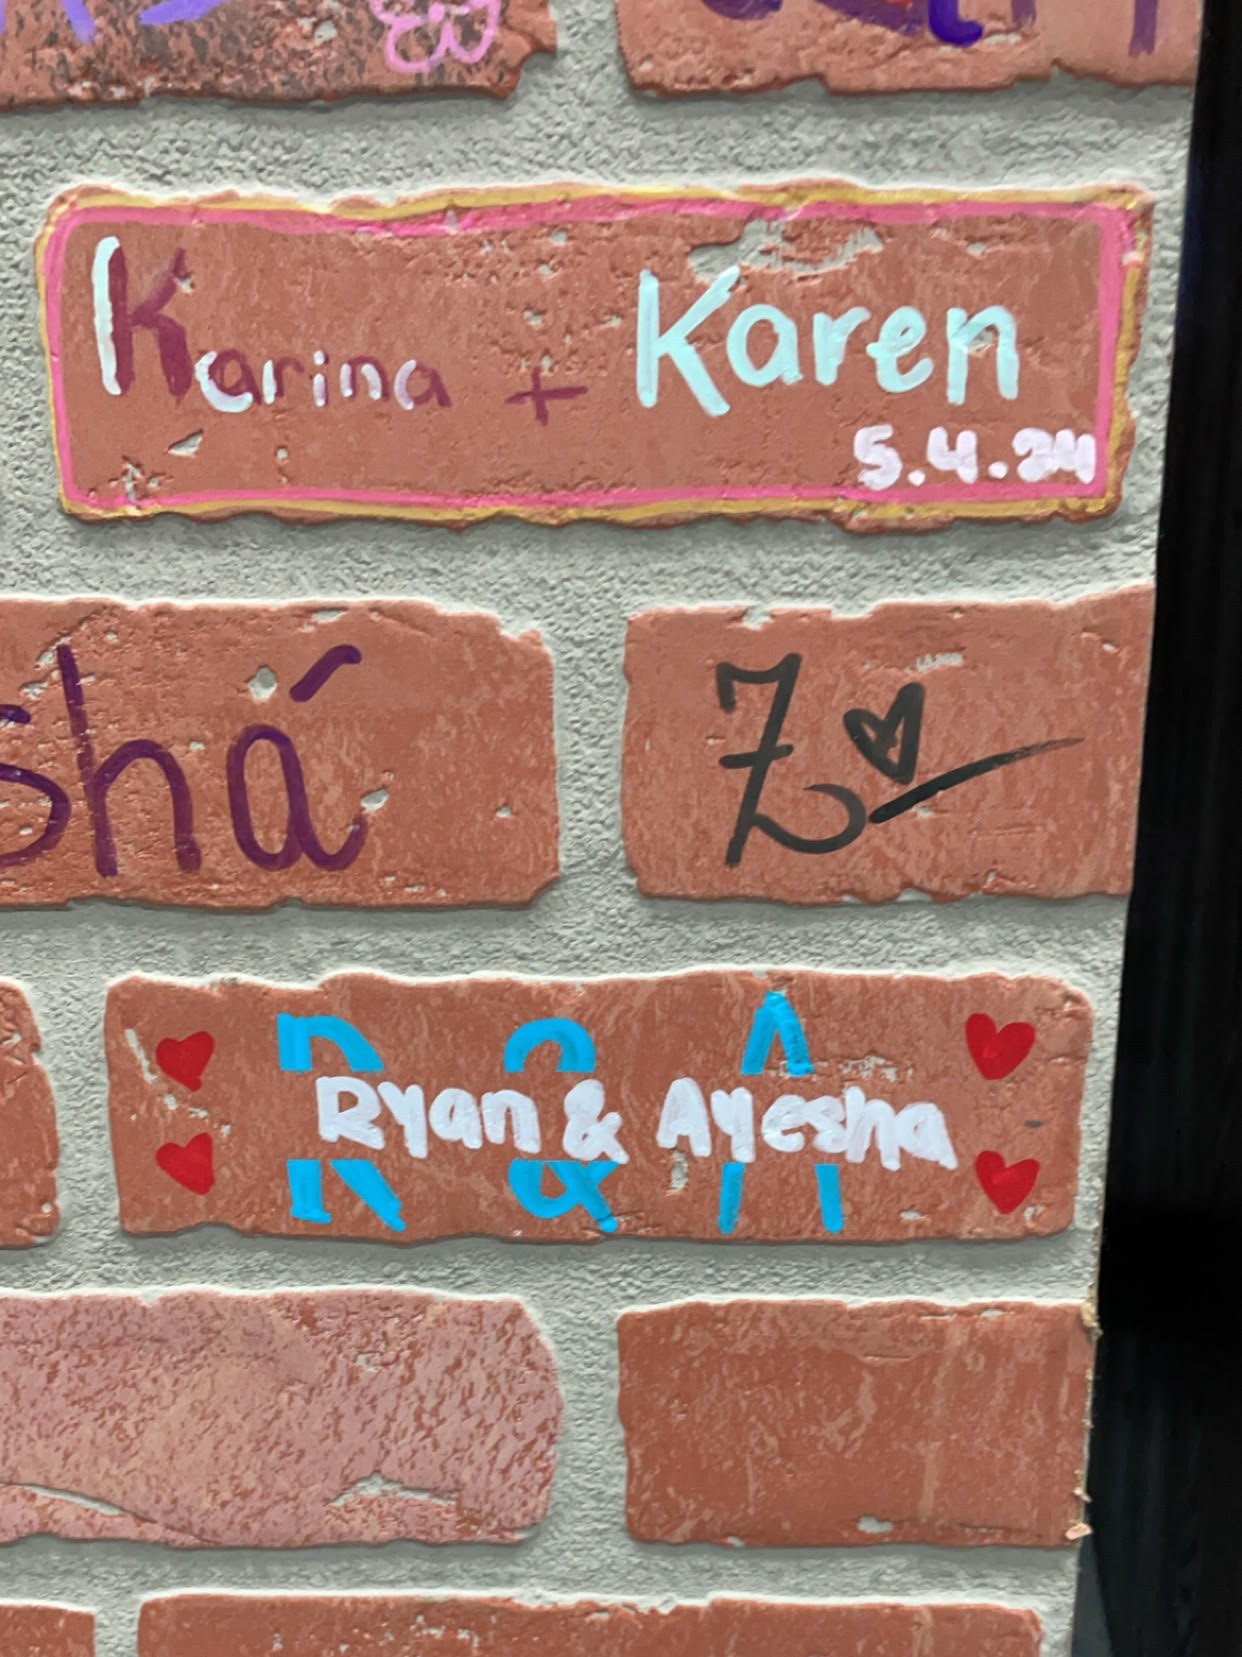 Karina + Karen
5.4.24
shá
Z
R & A
Ryan & Ayesha